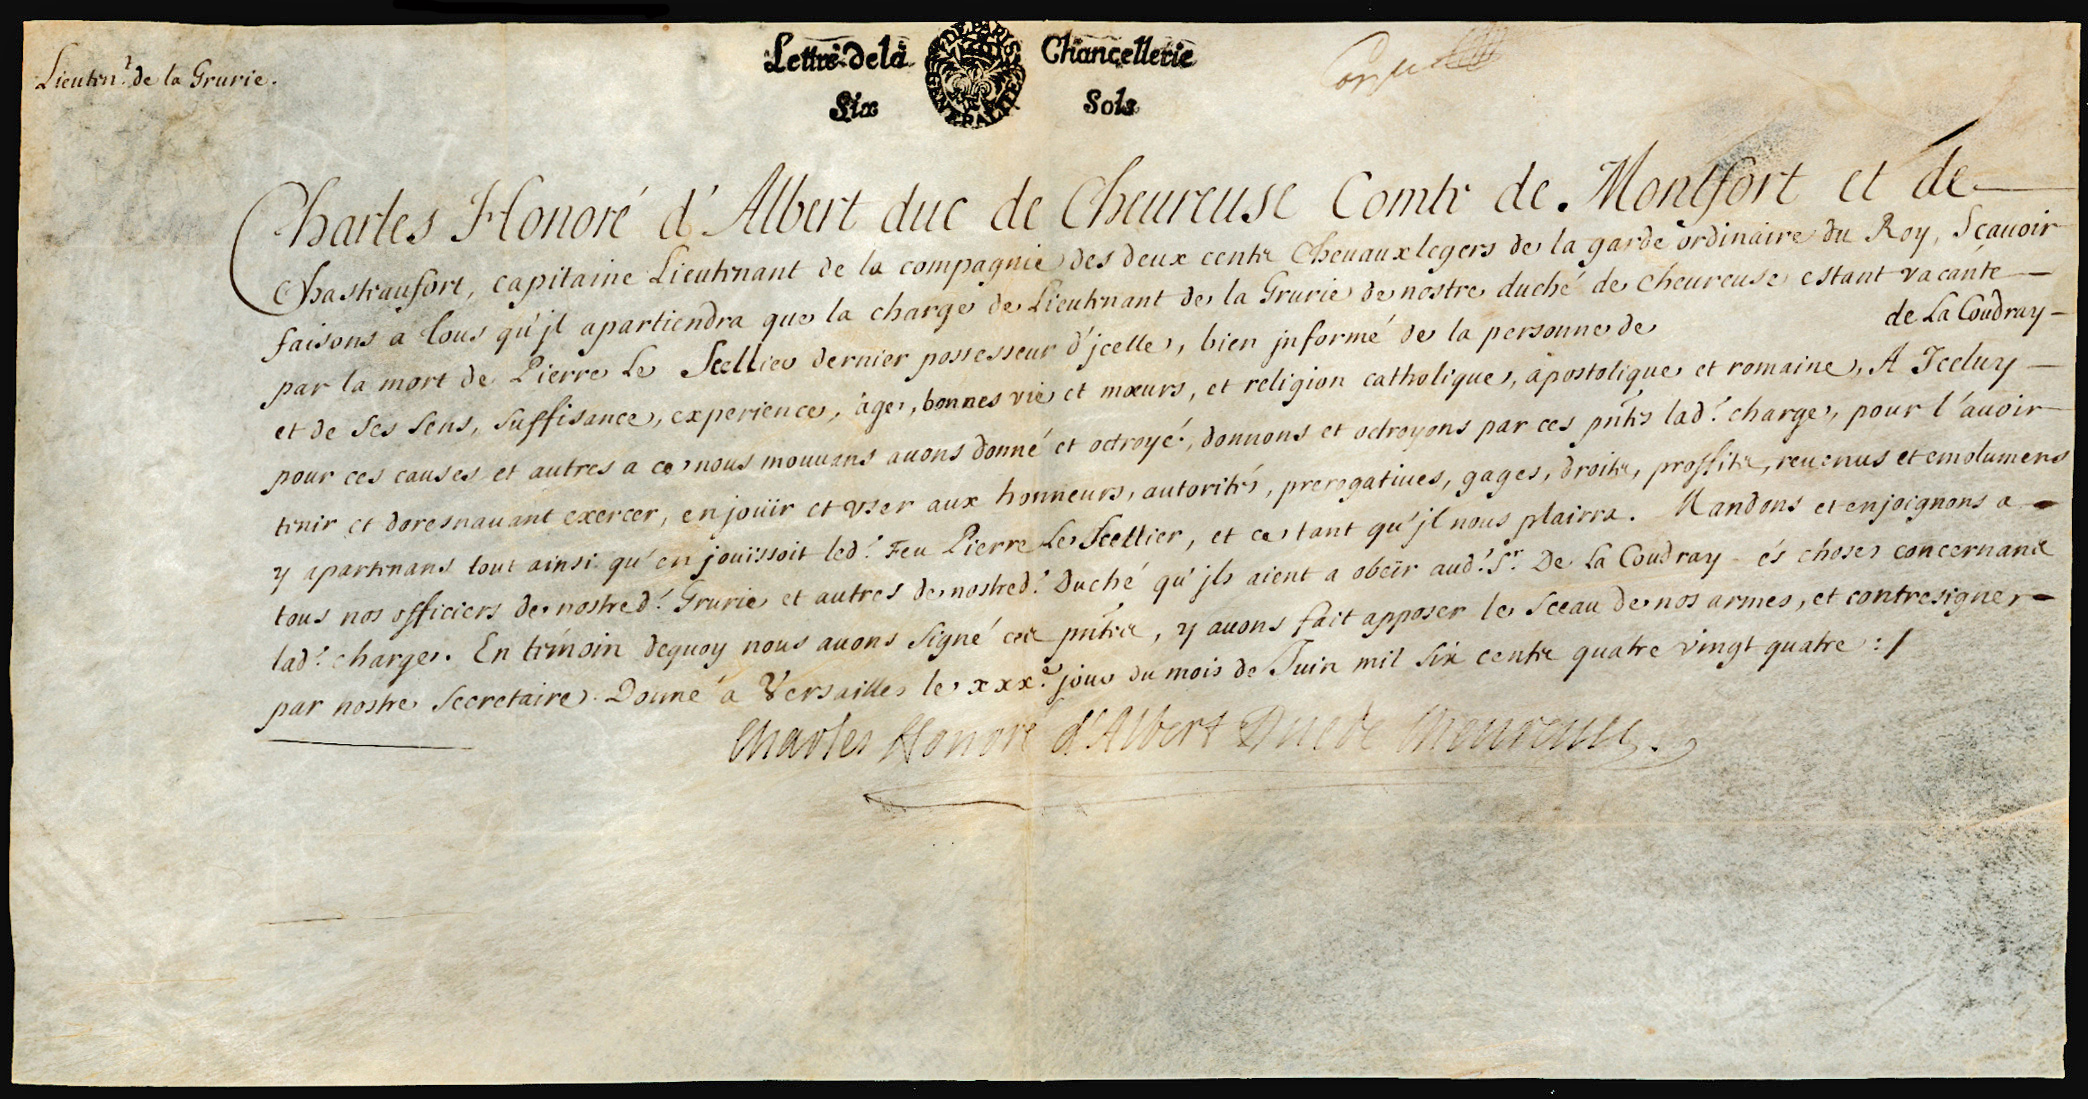 Lieutn.t de la Grurie.
Lettre de la Chancellerie
Six Sols
GENERALITE DE PARIS
Charles Honoré d'Albert duc de Cheureuse Comte de Montfort et de
Chasteaufort, capitaine Lieutenant de la compagnie des deux cents Cheuauxlegers de la garde ordinaire du Roy, Sçauoir
faisons a tous qu'jl apartiendra que la charge de Lieutenant de la Grurie de nostre duché de Cheureuse estant vacante
par la mort de Pierre Le Scellier dernier possesseur d'jcelle, bien jnformé de la personne de de La Coudray
et de ses sens, suffisance, experience, àge, bonnes vie et mœurs, et religion catholique, apostolique et romaine, A Jceluy
pour ces causes et autres a ce nous mouuans auons donné et octroyé, donnons et octroyons par ces pntes lad.e charge, pour l'auoir
tenir et doresnauant exercer, en joüir et vser aux honneurs, autorités, prerogatiues, gages, droits, proffits, reuenus et emolumens
y apartenans tout ainsi qu'en joüissoit led.t Feu Pierre Le Scellier, et ce tant qu'jl nous plairra. Mandons et enjoignons a
tous nos officiers de nostred.e Grurie et autres de nostred.t Duché qu'jls aient a obeïr aud.t S.r De La Coudray és choses concernant
lad.e charge. En témoin dequoy nous auons signé ces pntes, y auons fait apposer le sceau de nos armes, et contresigner
par nostre secretaire. Donné a Versailles le xxx.e jour du mois de Juin mil six cents quatre vingt quatre :/
Charles Honoré d'Albert Duc de Cheureuse.